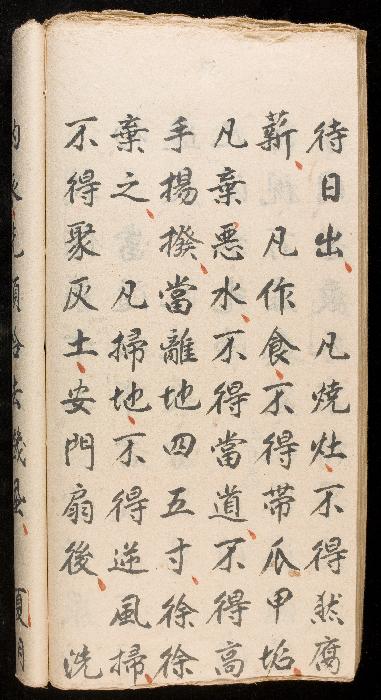 待日出凡燒灶不得然腐
薪凡作食不得带爪甲垢
凡棄悪水不得當道不得高
手揚撥當離地四五寸徐徐
棄之凡掃地不得逆風掃
不得聚灰土安門扇後洗